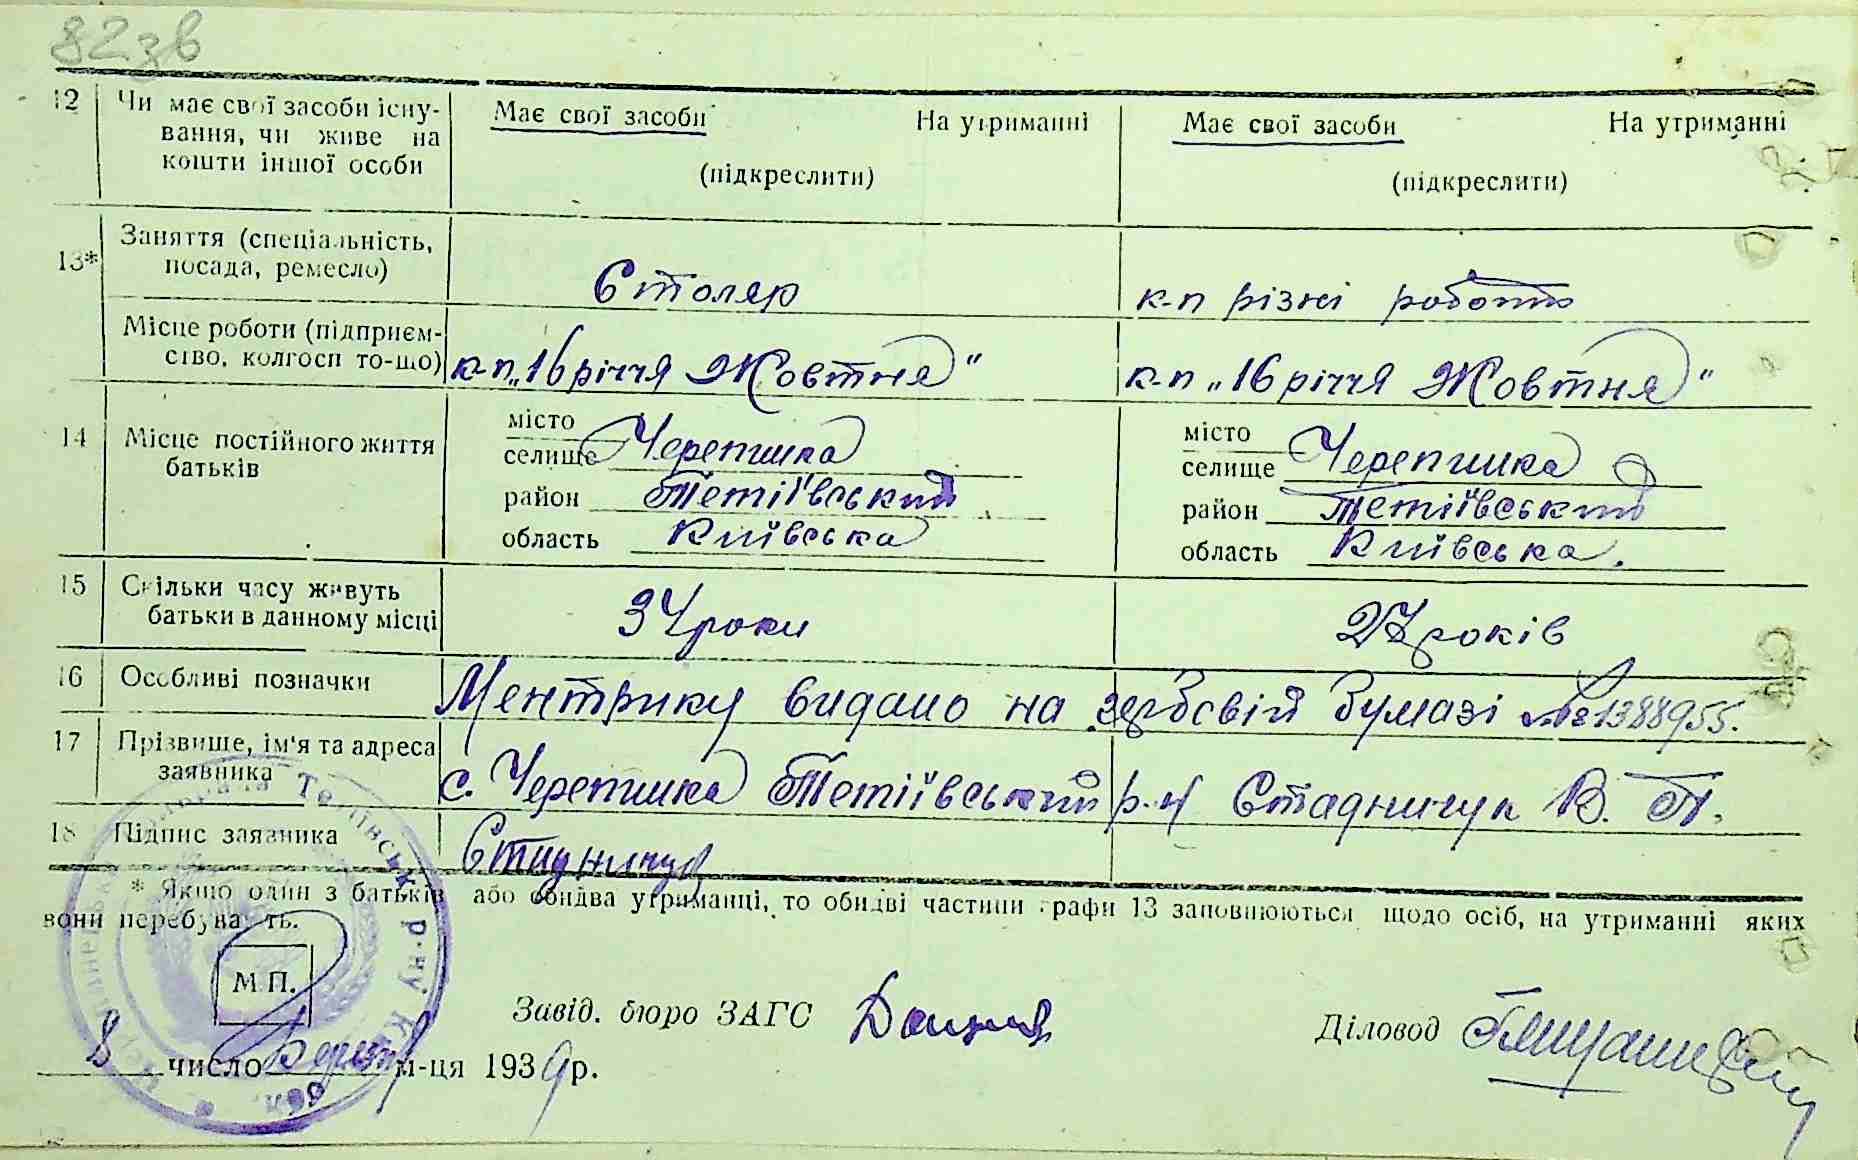 82зв
12 Чи має свої засоби існу- Має свої засоби На утриманні Має свої засоби На утриманні
вання, чи живе на
кошти іншої особи (підкреслити) (підкреслити)
13* Заняття (спеціальність,
посада, ремесло) Столяр к-п різні роботи
Місце роботи (підприєм-
ство, колгосп то-що) к-п „16 річчя Жовтня" к-п „16 річчя Жовтня"
14 Місце постійного життя місто місто
батьків селище Черепинка селище Черепинка
район Тетіївський район Тетіївський
область Київська область Київська.
15 Скільки часу живуть
батьки в данному місці 34 роки 27 років
16 Особливі позначки Ментрику видано на гербовій бумазі № 1388955.
17 Прізвище, ім'я та адреса
заявника с. Черепинка Тетіївський р-н Стадничук В. П.
18 Підпис заявника Стадничук
* Якщо один з батьків або обидва утриманці, то обидві частини графи 13 заповнюються щодо осіб, на утриманні яких
вони перебувають.
М.П.
Завід. бюро ЗАГС Діловод
8 число Березня м-ця 1939 р.
Тетіївськ. р-ну